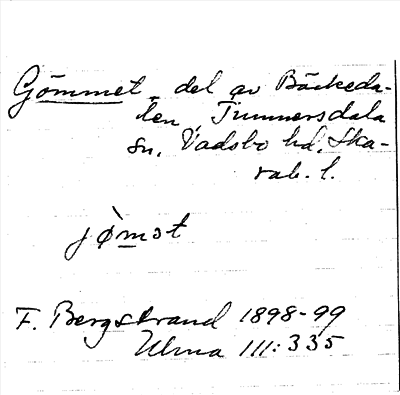 Gömmet, del av Bäckeda-
len, Timmersdala
sn, Vadsbo hd, Ska-
rab. l.
jø̀mət
F. Bergstrand 1898-99
Ulma 111:335